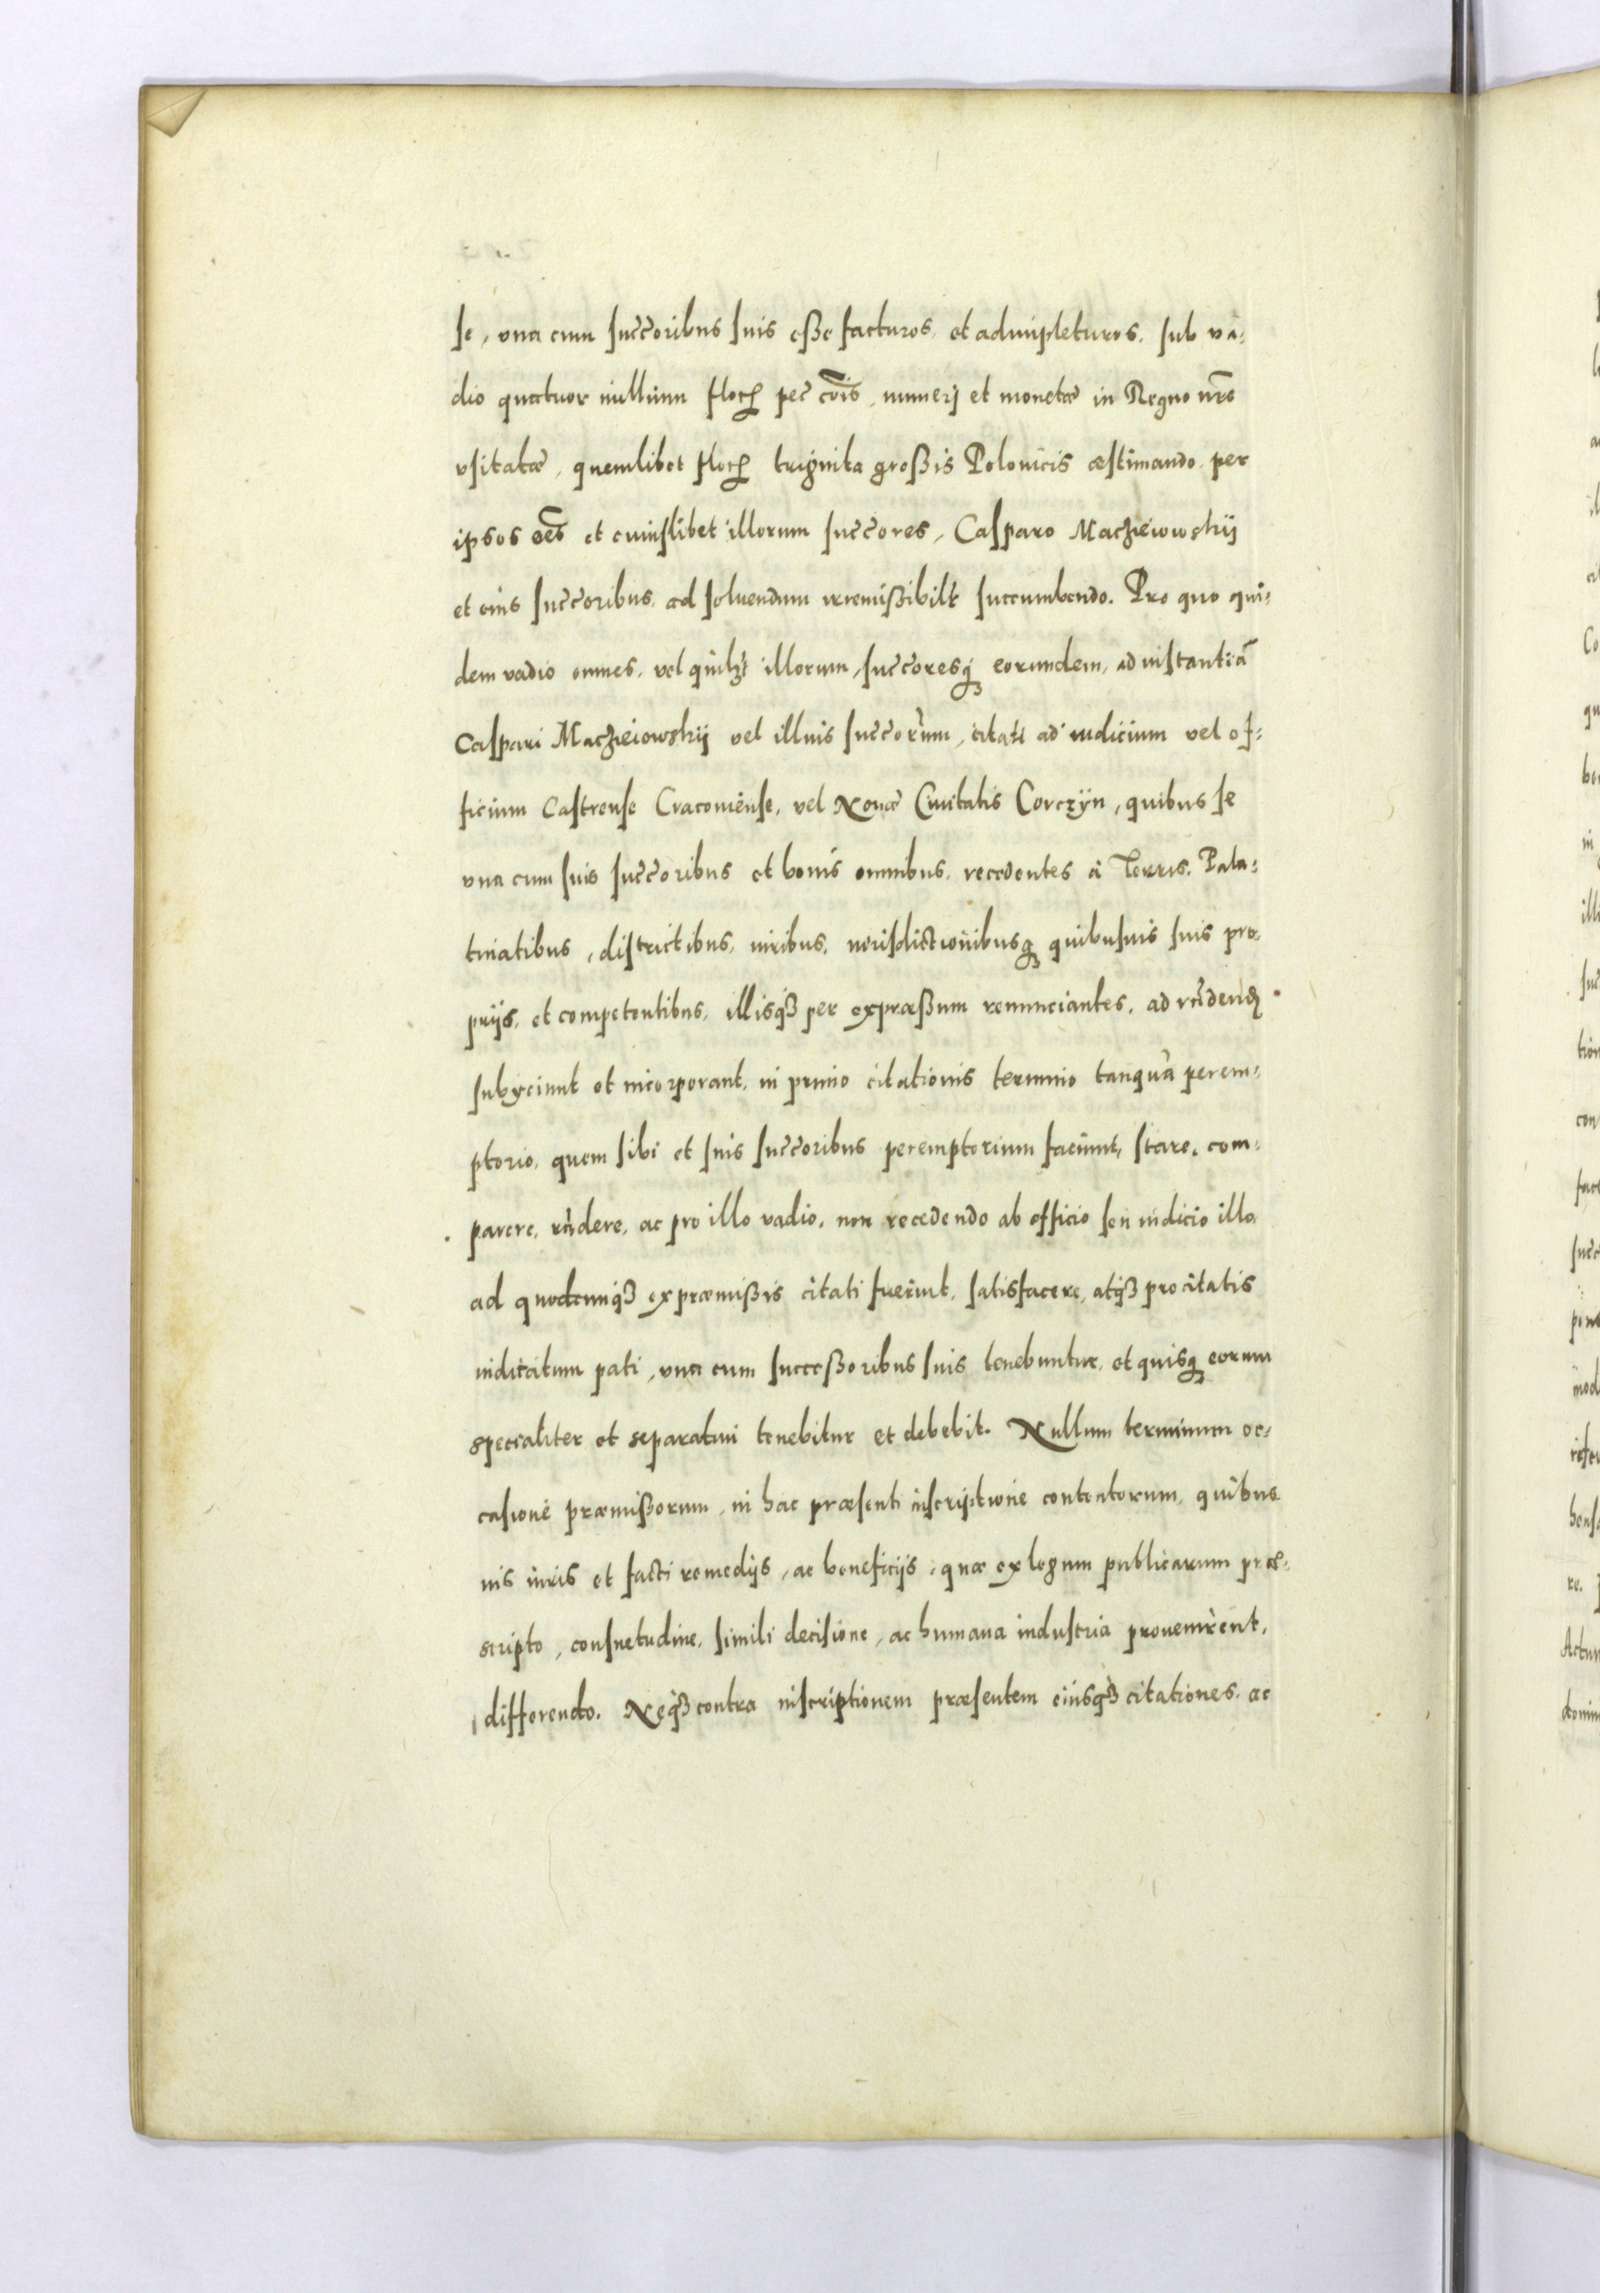 se, vna cum succoribus suis esse facturos, et adimpleturos, sub va-
dio quatuor millium flor pec cois, numerj et monetæ in Regno nro
vsitatæ, quemlibet flor triginta grossis Polonicis æstimando, per
ipsos oes et cuiuslibet illorum succores, Casparo Macżieiowskij
et eius succoribus, ad soluendum irremissibilr succumbendo. Pro quo qui-
dem vadio omnes, vel quilzt illorum, succoresq eorundem, ad instantiā
Caspari Macżieiowskij vel illius succorum, citati ad iudicium vel of-
ficium Castrense Cracouiense, vel Nouæ Ciuitatis Corczÿn, quibus se
vna cum suis succoribus et bonis omnibus, recedentes à Terris, Pala-
tinatibus, districtibus, iuribus, iurisdictionibusq quibusuis suis pro-
prijs, et competentibus, illisq3 per expræssum renunciantes, ad rñdend
subijciunt et incorporant, in primo citationis termino tanquā perem-
ptorio, quem sibi et suis succoribus peremptorium faciunt, stare, com-
parere, rñdere, ac pro illo vadio, non recedendo ab officio seu iudicio illo
ad quodcunq3 ex præmissis citati fuerint, satisfacere, atq3 pro citatis
iudicatum pati, vna cum successoribus suis tenebuntur, et quisq eorum
specialiter et separatim tenebitur et debebit. Nullum terminum oc-
casione præmissorum, in hac præsenti inscriptione contentorum, quibus
uis iuris et facti remedijs, ac beneficijs, quæ ex legum publicarum præ-
scripto, consuetudine, simili decisione, ac humana industria prouenirent,
differendo. Neq3 contra inscriptionem præsentem eiusq3 citationes, ac